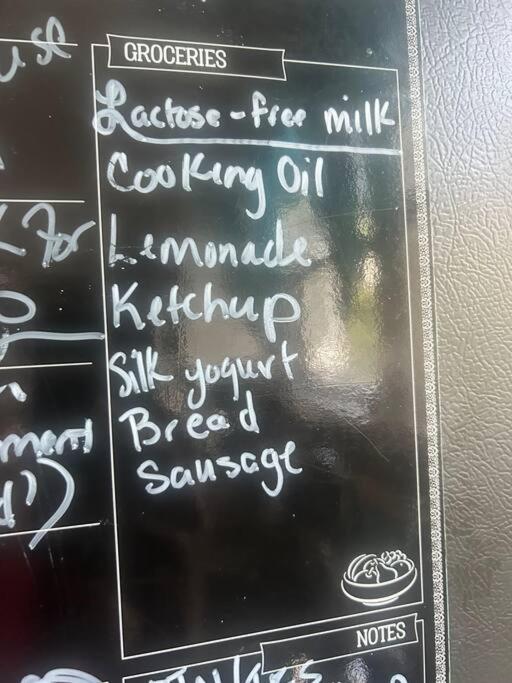 GROCERIES
Lactose-free milk
Cooking Oil
Lemonade
Ketchup
Silk yogurt
Bread
Sausage
For
NOTES